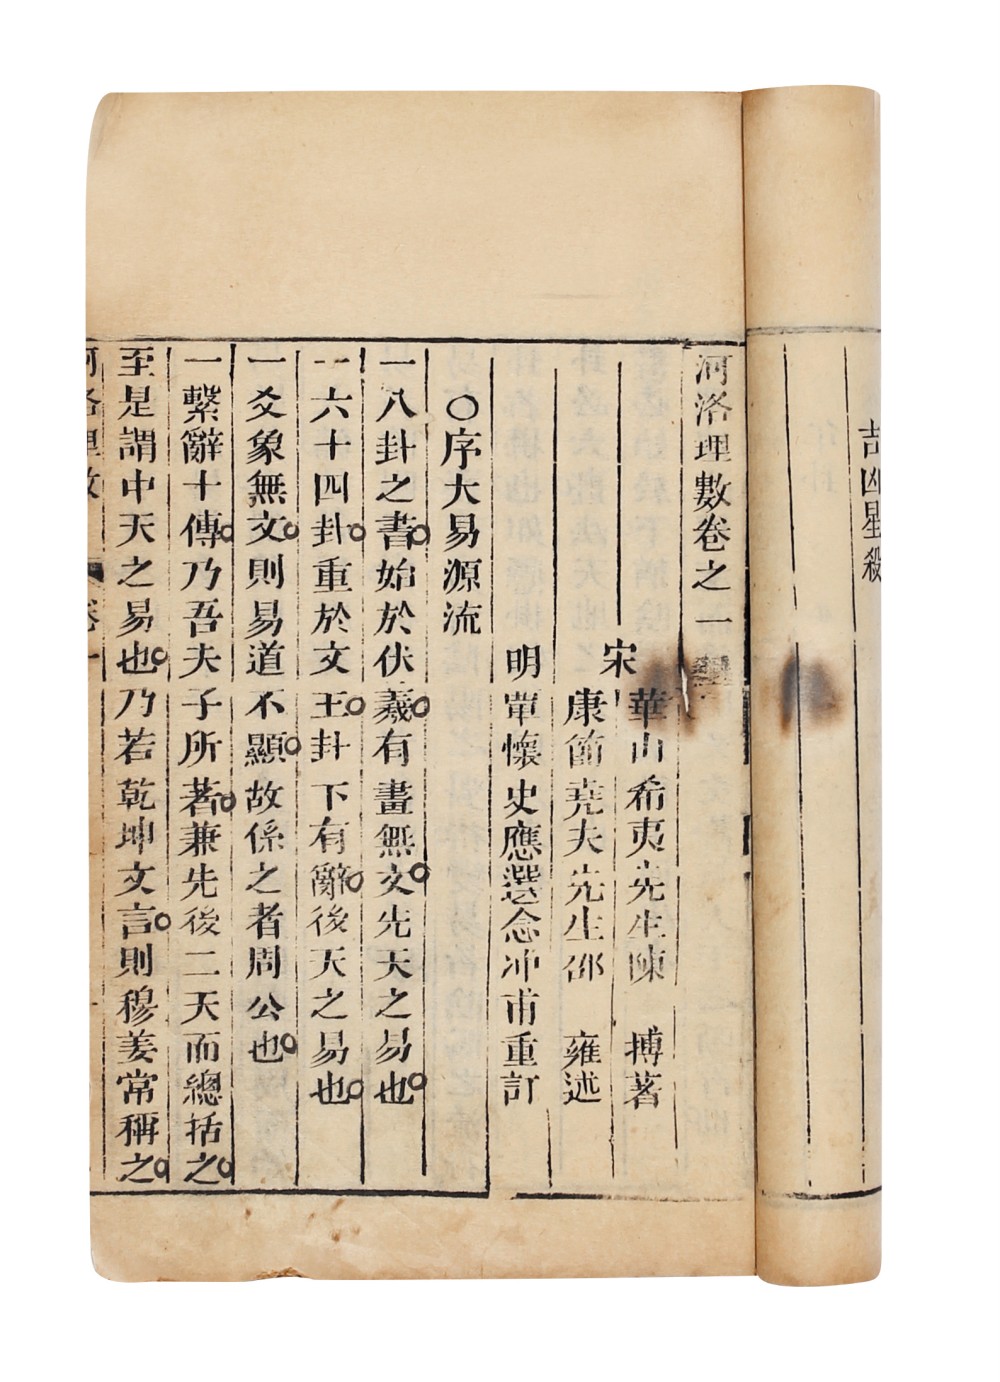 吉凶星殺
河洛理數卷之一
宋
華山希夷先生陳 摶著
康節堯夫先生邵 雍述
明 單懷史應選念冲甫重訂
○序大易源流
一八卦之書始於伏羲有畫無文先天之易也
一六十四卦重於文王卦下有辭後天之易也
一爻象無文則易道不顯故係之者周公也
一繫辭十傳乃吾夫子所著兼先後二天而總括之
至是謂中天之易也乃若乾坤文言則穆姜常稱之
河洛理數 卷一